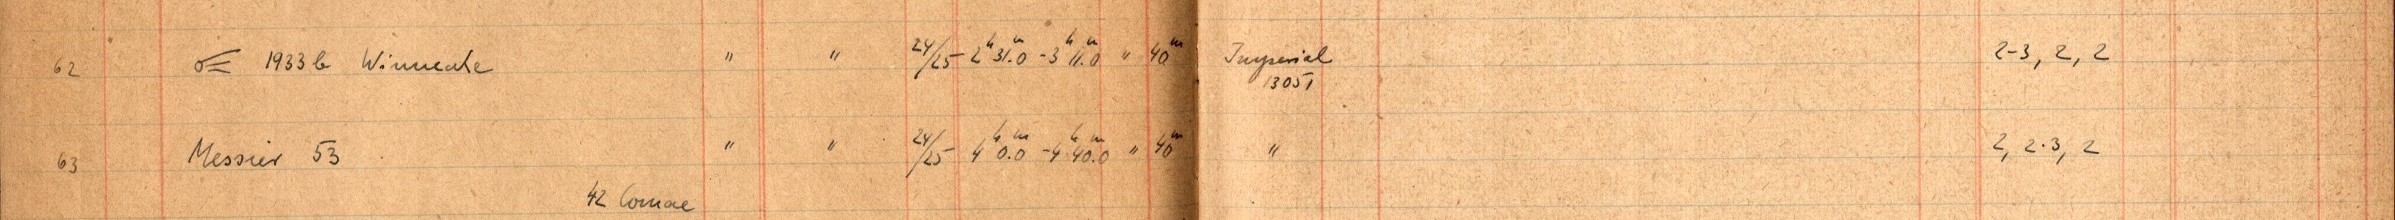 62 ☄ 1933b Winnecke " " 24/25 2h 31.m0 - 3h 11.m0 " 40m Imperial 2-3, 2, 2
13051
63 Messier 53 " " 24/25 4h 0.m0 - 4h 40.m0 " 40m " 2, 2-3, 2
42 Comae